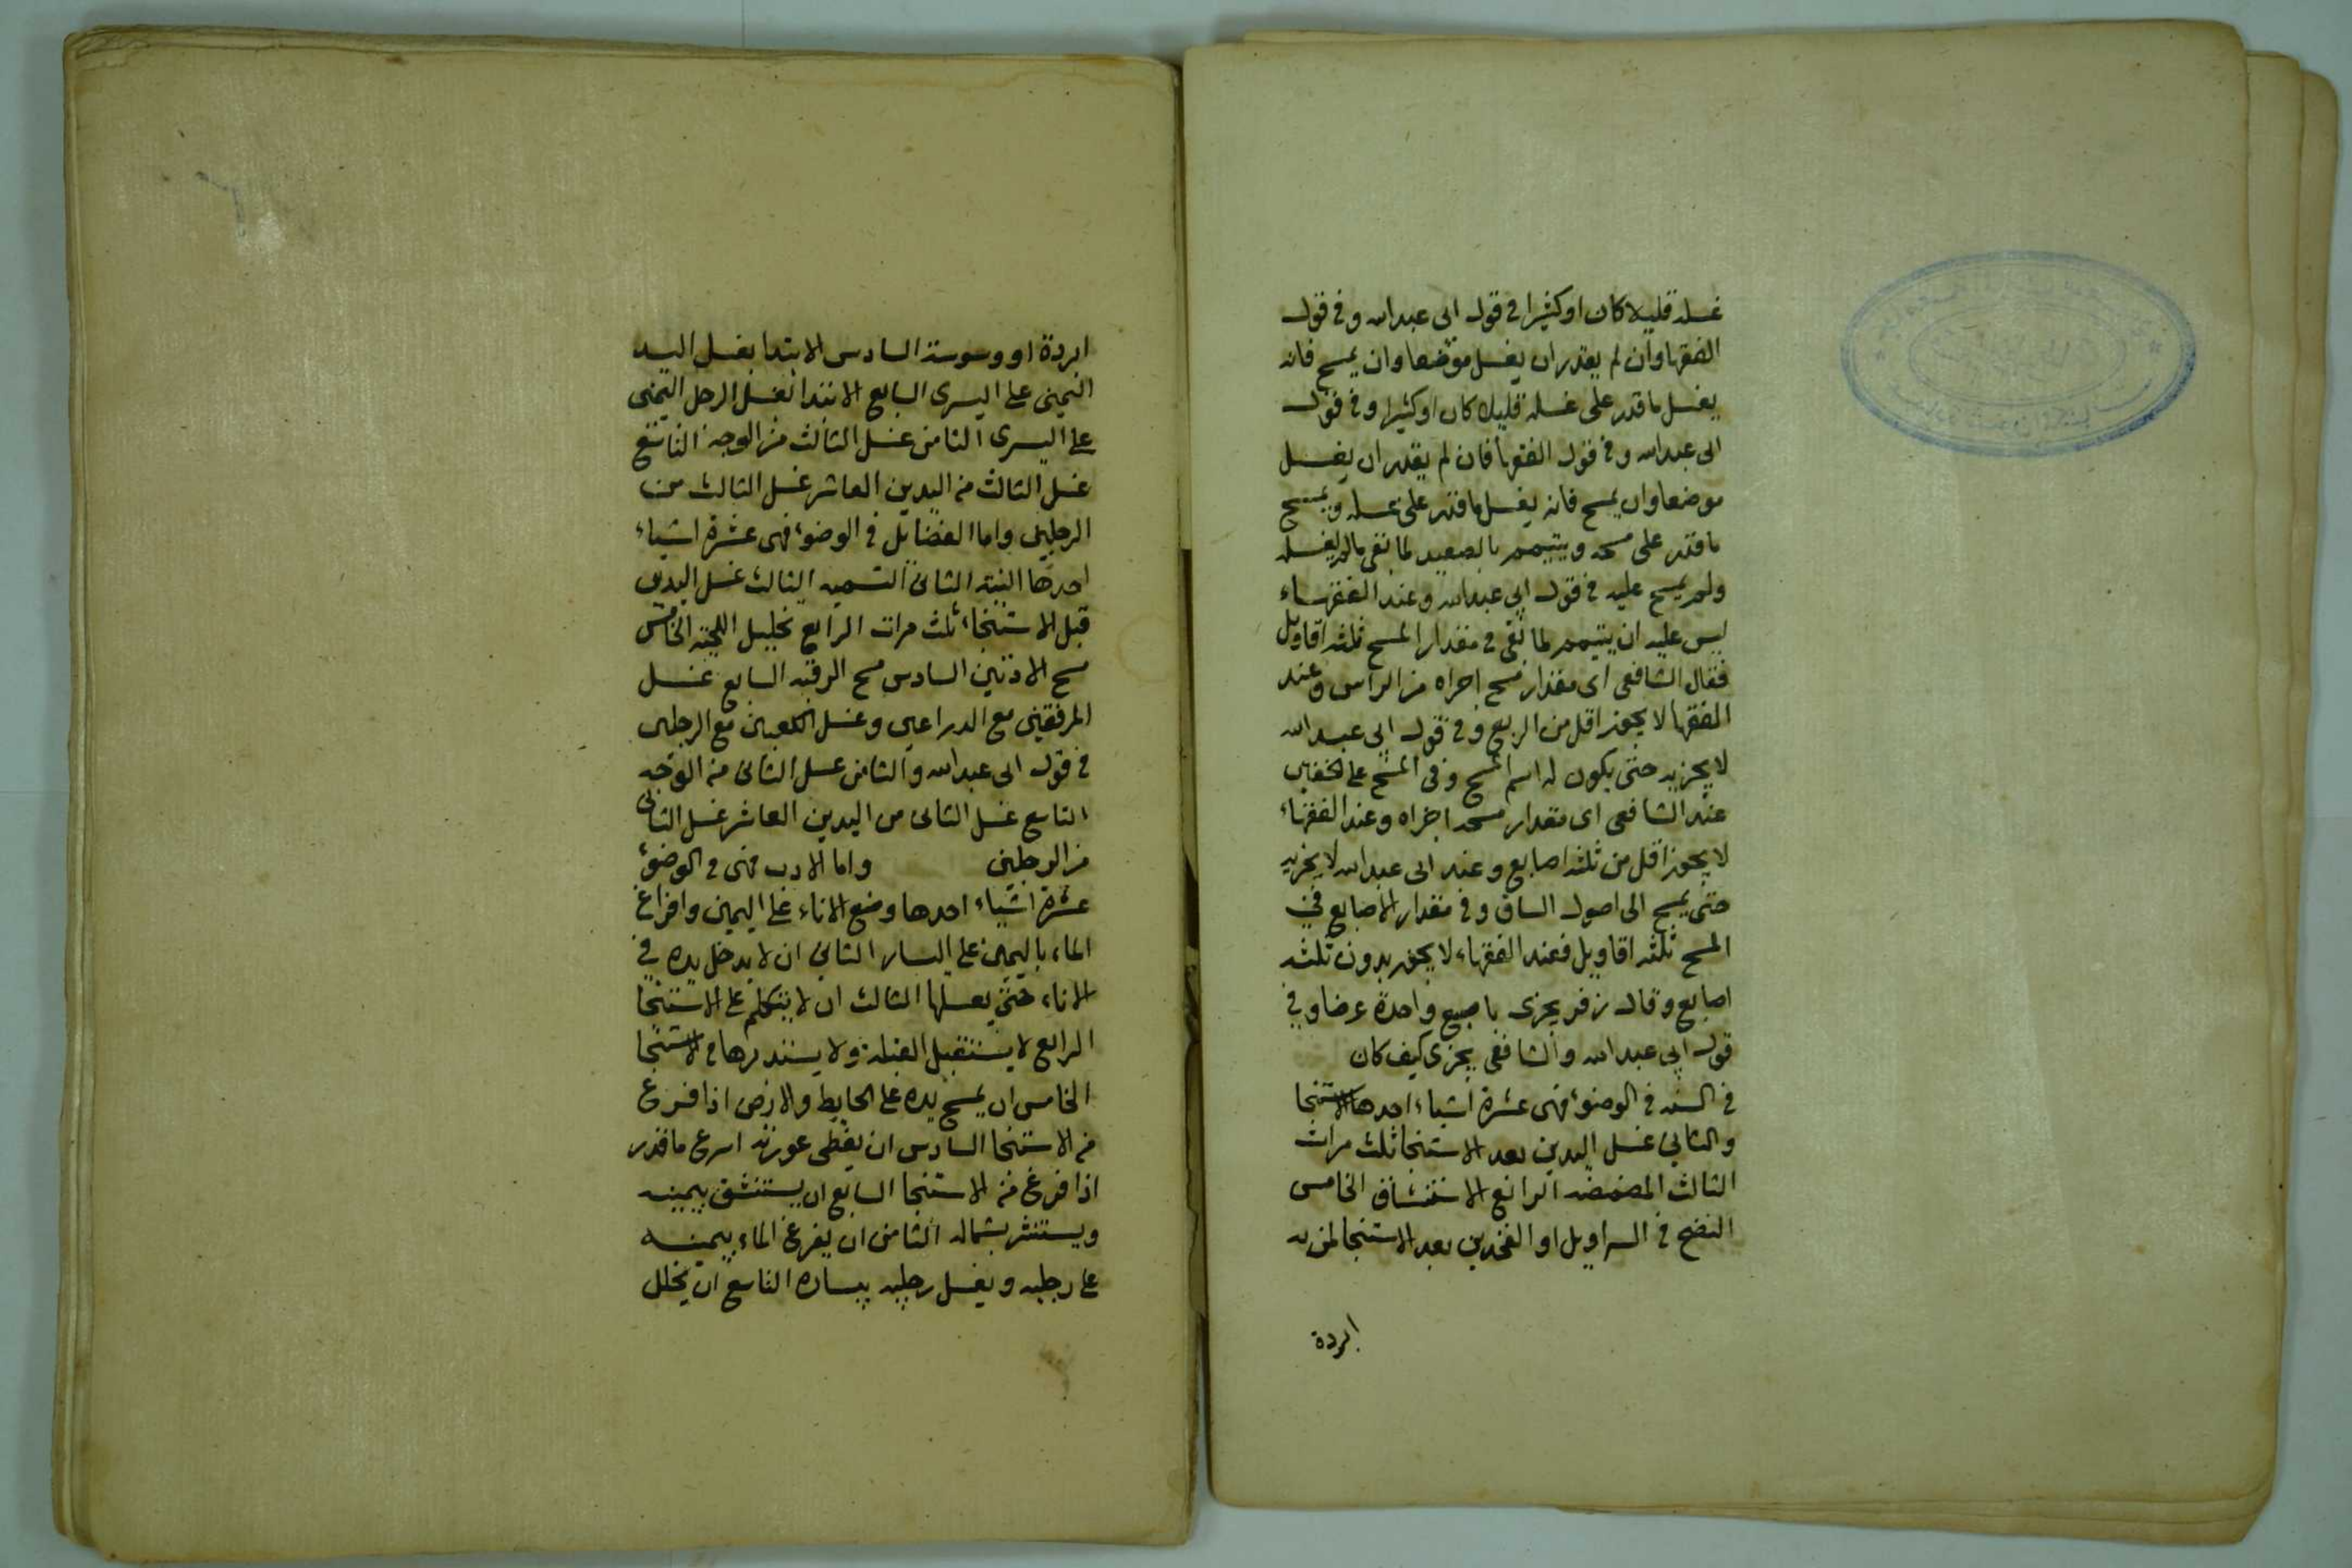 غسله قليلا كان او كثيرا في قول ابى عبدالله وفى قول
الفقها وان لم يقدر ان يغسل موضعا وان يمسح فانه
يغسل ما قدر على غسله قليلا كان او كثيرا وفى قول
ابى عبدالله وفى قول الفقها فان لم يقدر ان يغسل
موضعا وان يمسح فانه يغسل ما قدر على غسله ويمسح
ما قدر على مسحه ويتيمم بالصعيد لما بقى مالم يغسله
ولم يمسح عليه في قول ابي عبدالله وعند الفقهاء
ليس عليه ان يتيمم لما بقى فى مقدار المسح ثلثه اقاويل
فقال الشافعى اى مقدار مسح اجزاه من الراس وعند
الفقها لا يجوز اقل من الربع وفى قول ابى عبدالله
لا يجزيه حتى يكون له اسم المسح وفى المسح على الخفين
عند الشافعى اى مقدار مسحه اجزاه وعند الفقهاء
لا يجوز اقل من ثلثه اصابع وعند ابى عبدالله لا يجزيه
حتى يمسح الى اصول الساق وفى مقدار الاصابع في
المسح ثلثه اقاويل فعند الفقهاء لا يجوز بدون ثلثه
اصابع وقال زفر يجزى باصبع واحدة عرضا وفي
قول ابي عبدالله والشافعى يجزى كيف كان
في السنه في الوضوء فهى عشرة اشياء احدها الاستنجا
والثاني غسل اليدين بعد الاستنجا ثلث مرات
الثالث المضمضه الرابع الاستنشاق الخامس
النضح في السراويل او الفخدين بعد الاستنجا لمن به
ابردة
ابردة او وسوسة السادس الابتدا بغسل اليد
اليمنى على اليسرى السابع الابتدا بغسل الرجل اليمنى
على اليسرى الثامن غسل الثالث من الوجه التاسع
غسل الثالث من اليدين العاشر غسل الثالث من
الرجلين واما الفضايل في الوضوء فهى عشرة اشياء
احدها النية الثانى التسميه الثالث غسل اليدين
قبل الاستنجاء ثلث مرات الرابع تخليل اللحية الخامس
مسح الاذنين السادس مسح الرقبه السابع غسل
المرفقين مع الدراعين وغسل الكعبين مع الرجلين
في قول ابى عبدالله والثامن غسل الثانى من الوجه
التاسع غسل الثانى من اليدين العاشر غسل الثانى
من الرجلين واما الادب فهى فى الوضوء
عشرة اشياء احدها وضع الاناء على اليمين وافراغ
الماء باليمين على اليسار الثاني ان لا يدخل يده في
الاناء حتى يغسلها الثالث ان لا يتكلم على الاستنجا
الرابع لا يستقبل القبلة ولا يستدبرها فى الاستنجا
الخامس ان يمسح يده على الحايط والارض اذا فرغ
من الاستنجا السادس ان يغطى عورته اسرع ما قدر
اذا فرغ من الاستنجا السابع ان يستنشق بيمينه
ويستنثر بشماله الثامن ان يفرغ الماء بيمينه
على رجليه ويغسل رجليه بيساره التاسع ان يخلل